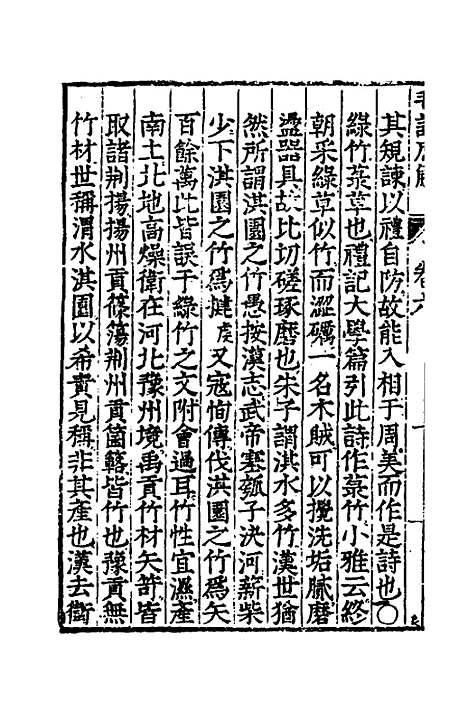 毛詩原解
卷六
其規諫以禮自防故能入相于周美而作是詩也○
綠竹菉草也禮記大學篇引此詩作菉竹小雅云終
朝采綠草似竹而澀礪一名木賊可以攪洗垢膩磨
盪器具故比切磋琢磨也朱子謂淇水多竹漢世猶
然所謂淇園之竹愚按漢志武帝塞瓠子決河薪柴
少下淇園之竹爲揵又寇恂傳伐淇園之竹爲矢
百餘萬此皆誤于綠竹之文附會過耳竹性宜濕產
南土北地高燥衛在河北豫州境禹貢竹材矢笴皆
取諸荆揚揚州貢篠簜荆州貢箘簵皆竹也豫貢無
竹材世稱渭水淇園以希貴見稱非其產也漢去衛